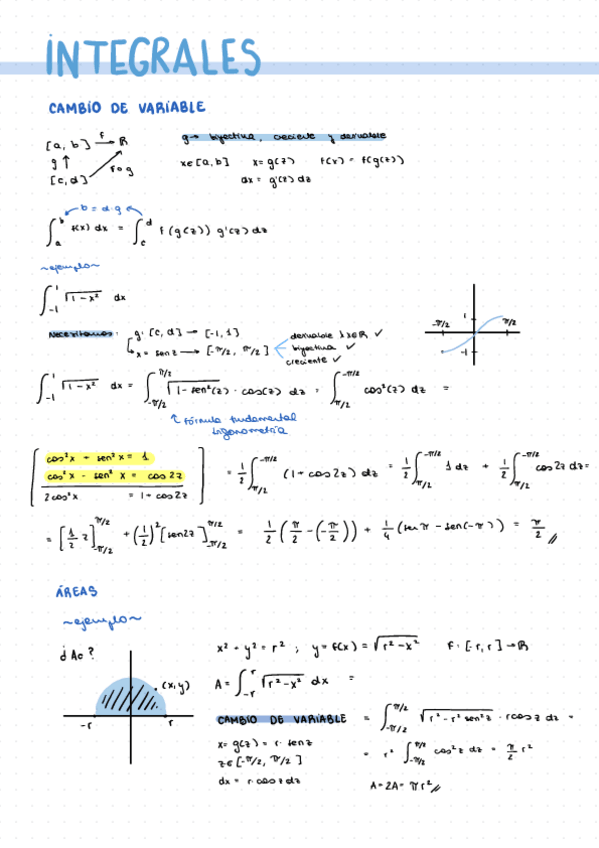 INTEGRALES
CAMBIO DE VARIABLE
[a, b] —f→ ℝ
g ↑ f∘g
[c, d]
g → biyectiva, creciente y derivable
x∈[a, b] x = g(z) f(x) = f(g(z))
dx = g'(z) dz
b = d·g
∫_a^b f(x) dx = ∫_c^d f(g(z)) g'(z) dz
~ejemplo~
∫_{-1}^1 √(1 - x²) dx
Necesitamos: g: [c, d] → [-1, 1]
x = sen z → [-π/2, π/2]
derivable
biyectiva ✓
creciente ✓
-π/2 1 π/2
-1
∫_{-1}^1 √(1 - x²) dx = ∫_{-π/2}^{π/2} √(1 - sen²(z)) · cos(z) dz = ∫_{π/2}^{-π/2} cos²(z) dz =
↑ fórmula fundamental
trigonometría
cos²x + sen²x = 1
cos²x - sen²x = cos 2z
2cos²x = 1 + cos 2z
= 1/2 ∫_{π/2}^{-π/2} (1 + cos 2z) dz = 1/2 ∫_{π/2}^{-π/2} 1 dz + 1/2 ∫_{π/2}^{-π/2} cos 2z dz =
= [1/2 z]_{-π/2}^{π/2} + (1/2)² [sen 2z]_{-π/2}^{π/2} = 1/2 (π/2 - (-π/2)) + 1/4 (sen π - sen(-π)) = π/2 //
ÁREAS
~ejemplo~
¿Ao?
(x, y)
-r r
x² + y² = r² ; y = f(x) = √(r² - x²) F: [-r, r] → ℝ
A = ∫_{-r}^r √(r² - x²) dx =
CAMBIO DE VARIABLE = ∫_{-π/2}^{π/2} √(r² - r² sen² z) · r cos z dz =
x = g(z) = r · sen z
z∈[-π/2, π/2] = r² ∫_{-π/2}^{π/2} cos² z dz = π/2 r²
dx = r cos z dz
A = 2A = πr² //